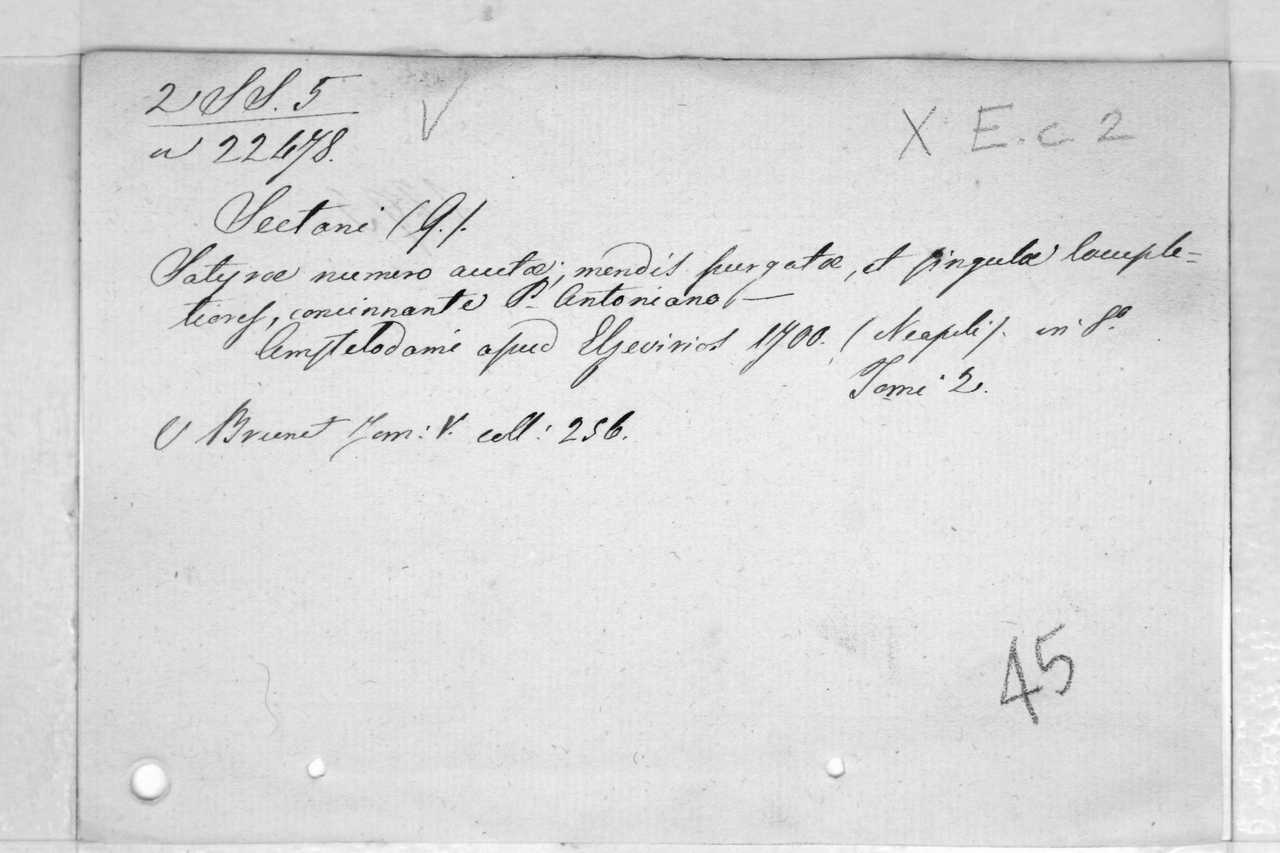 2 SS. 5
n 22478.
V
X E. c 2
Sectani (Q.).
Satyrae numero auctae, mendis purgatae, et singulae locuple=
tiores, concinnante P. Antoniano —
Amstelodami apud Elsevirios 1700. (Neapoli). in 8.º
Tomi 2.
V Brunet Tom: V. coll: 256.
45